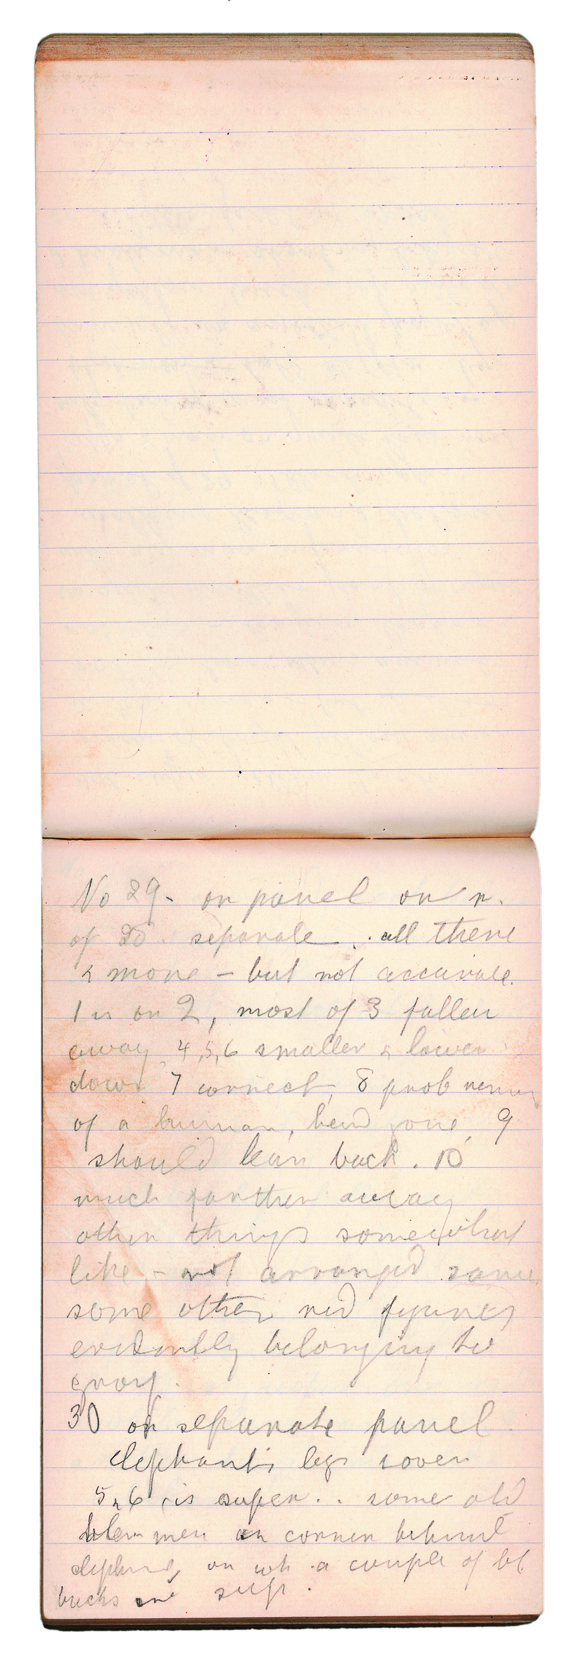 No 29 - on panel on n.
of 20 separate .. all there
& more - but not accurate.
1 is on 2, most of 3 fallen
away 4,5,6 smaller & lower
down 7 correct, 8 prob
of a human, head gone, 9
should lean back. 10
much farther away
other things somewhat
like - not arranged same
some other red figures
evidently belonging to
group.
30 on separate panel
elephant's legs over
5 & 6, is super .. some old
men on corner behind
on wh a couple of bl
bucks are sup.